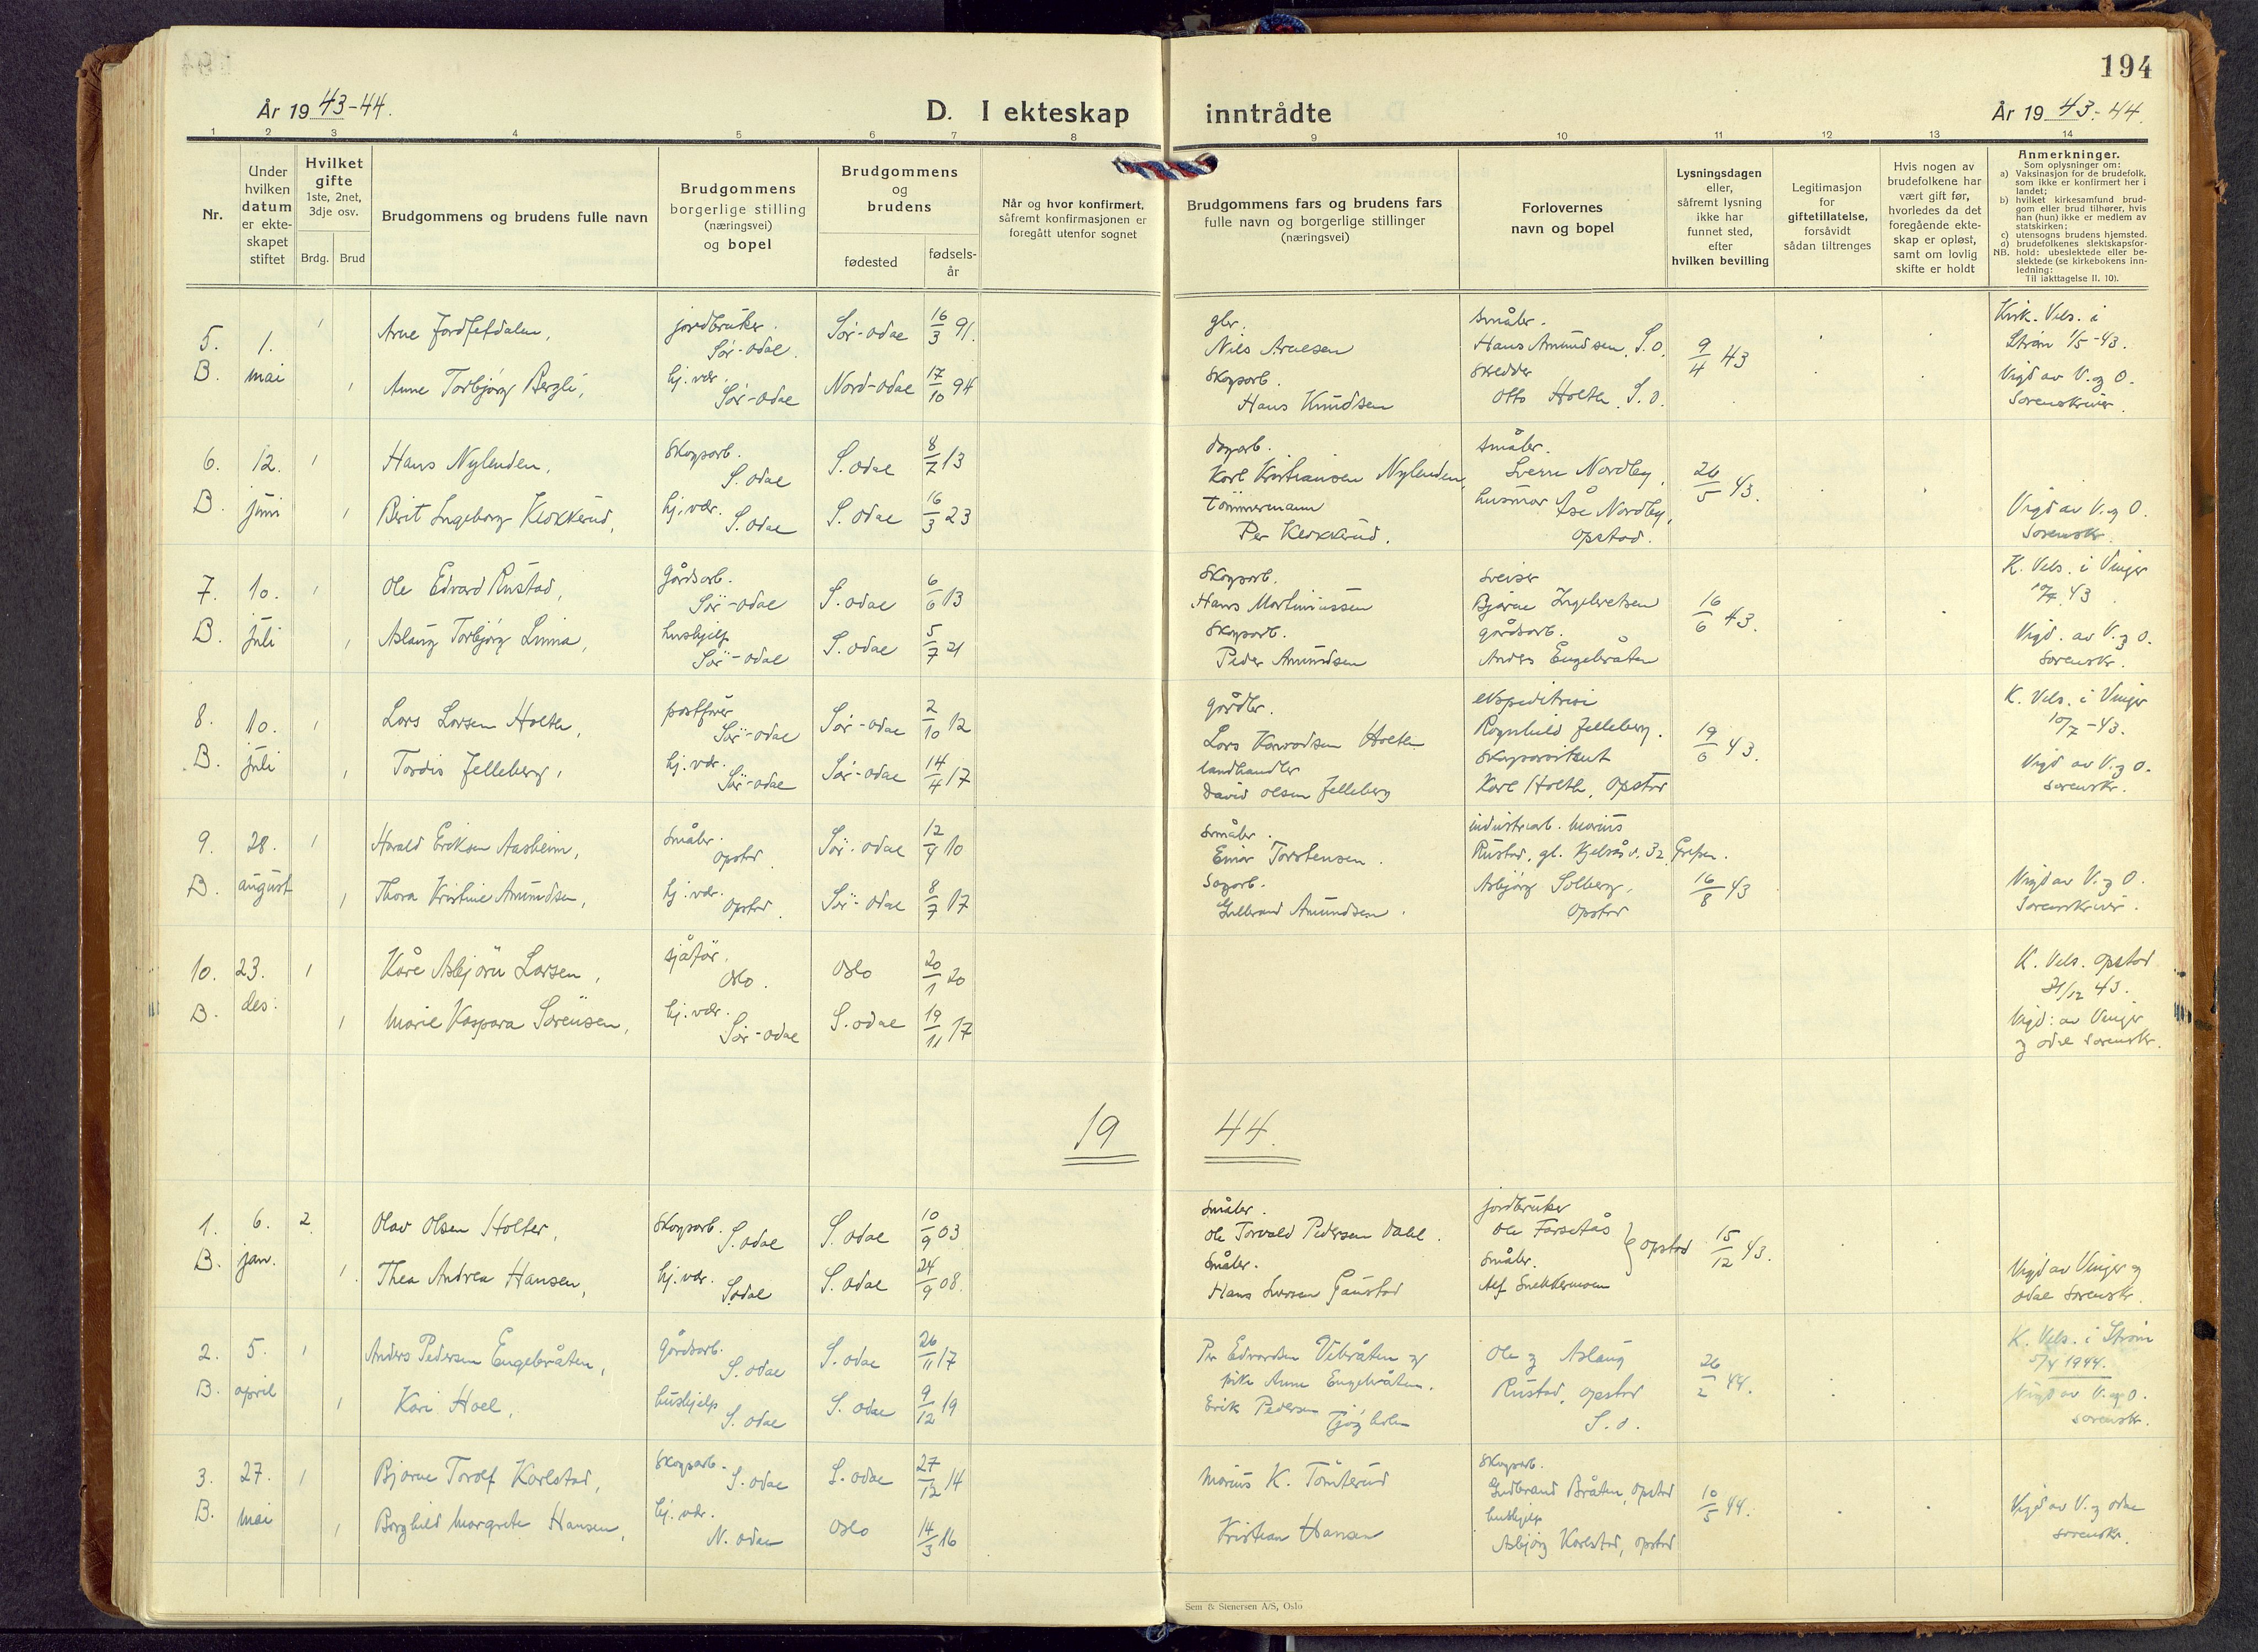 194
År 1943-44.
D. I ekteskap inntrådte
År 1943.-44.
1 2 3 4 5 6 7 8 9 10 11 12 13 14
Nr.
Under hvilken datum er ekteskapet stiftet
Hvilket gifte
1ste, 2net, 3dje osv.
Brdg. Brud
Brudgommens og brudens fulle navn
Brudgommens borgerlige stilling (næringsvei) og bopel
Brudgommens og brudens
fødested
fødselsår
Når og hvor konfirmert, såfremt konfirmasjonen er foregått utenfor sognet
Brudgommens fars og brudens fars fulle navn og borgerlige stillinger (næringsvei)
Forlovernes navn og bopel
Lysningsdagen eller, såfremt lysning ikke har funnet sted, efter hvilken bevilling
Legitimasjon for giftetillatelse, forsåvidt sådan tiltrenges
Hvis nogen av brudefolkene har vært gift før, hvorledes da det foregående ekteskap er opløst, samt om lovlig skifte er holdt
Anmerkninger.
Som oplysninger om:
a) Vaksinasjon for de brudefolk, som ikke er konfirmert her i landet;
b) hvilket kirkesamfund brudgom eller brud tilhører, hvis han (hun) ikke er medlem av statskirken;
c) utensogns brudens hjemsted.
d) brudefolkenes slektskapsforhold: ubeslektede eller beslektede (se kirkebokens innledning:
NB.
Til iakttagelse II. 10).
5. 1. 1 Arne jordbruker. Sør-Odal. Sør-Odal 16/3 91. Nils Arnesen småbr. Hans Amundsen, S.O. 9/4 43 Kirk. Vels. i Strøm 1/5-43.
B. mai 1 Anne Torbjørg Bergli, hj. vær. Sør-Odal Nord-Odal 17/10 94 Skogsarb. Hans Knudsen skredder Otto Holth, S.O. Vigd av V. og O. Sorenskriver.
6. 12. 1 Hans Nylenden, Skogsarb. S. Odal S. Odal 8/7 13 Karl Kristiansen Nylenden, småbr. Sverre Nordby, 26/5 43.
B. juni 1 Berit Ingeborg Klokkerud, hj. vær. S. Odal S. Odal 16/3 23 Tømmermann Per Klokkerud. husmor Åse Nordby, Opstad. Vigd av V. og O. Sorenskr.
7. 10. 1 Ole Edvard Rustad, Gårdsarb. Sør-Odal S. Odal 6/6 13 Skogsarb. Hans Martiniussen Sveiser Bjarne Ingebretsen 16/6 43. K. Vels. i Vinger 10/7 43
B. juli 1 Aslaug Torbjørg Linna, hushjelp Sør-Odal S. Odal 5/7 21 Skogsarb. Peder Amundsen gårdsarb. Anders Engebråten Vigd. av V. og O. Sorenskr.
8. 10. 1 Lars Larsen Holth, postfører Sør-Odal Sør-Odal 2/10 12 gårdbr. Lars Holth ekspeditrise Ragnhild Jelleberg. 19/6 43. K. Vels. i Vinger 10/7-43.
B. juli 1 Tordis Jelleberg, hj. vær. Sør-Odal Sør-Odal 14/4 17 landhandler David Olsen Jelleberg Karl Holth, Opstad Vigd av V. og O. Sorenskr.
9. 28. 1 Harald Eriksen Aasheim, Småbr. Opstad. Sør-Odal 12/4 10 Småbr. Einar Torstensen. industriarb. Marius Rustad, gl. Kjelsås v. 32, Grefsen.
B. august 1 Thora Kristine Amundsen, hj. vær. Opstad. Sør-Odal 8/7 17 Sagarb. Gulbrand Amundsen. Asbjørg Solberg, Opstad 16/8 43 Vigd av V. og O. Sorenskriver.
10. 23. 1 Kåre Asbjørn Larsen, sjåfør. Oslo. Oslo 20/1 20 K. Vels. Opstad 43.
B. des. 1 Marie Kaspara Sørensen, hj. vær. Sør-Odal S. Odal 19/11 17 Vigd: av Vinger og Odal Sorenskr.
19 44.
1. 6. 2. Olav Olsen Holter, Skogsarb. S. Odal S. Odal 10/9 03 Småbr. Ole Torvald Pedersen Dahl. jordbruker Ole Farsetås Opstad 15/12 43.
B. jan. 1 Thea Andrea Hansen, hj. vær. S. Odal S. Odal 24/9 08. Småbr. Hans Iversen Gaustad Småbr. Alf Snekkermoen Vigd av Vinger og Odal Sorenskr.
2. 5. 1 Anders Pedersen Engebråten, Gårdsarb. S. Odal S. Odal 26/11 17 Per Edvardsen og pike Anne Engebråten. Ole og Aslaug Rustad, Opstad S.O. 26/2 44. K. Vels. i Strøm 5/4 1944.
B. april 1 Kari Hoel, hushjelp S. Odal S. Odal 9/12 19 Erik Pedersen Vigd av V. og O. Sorenskr.
3. 27. 1 Bjarne Torolf Karlstad, Skogsarb. S. Odal S. Odal 27/12 14 Marius K. Tomterud Skogsarb. Gudbrand Bråten, Opstad 10/5 44.
B. mai 1 Borghild Margrete Hansen, hj. vær. N. Odal Oslo 14/3 16 Kristian Hansen hushjelp Asbjørg Karlstad, Opstad Vigd av V. og Odal sorenskr.
Sem & Stenersen A/S, Oslo